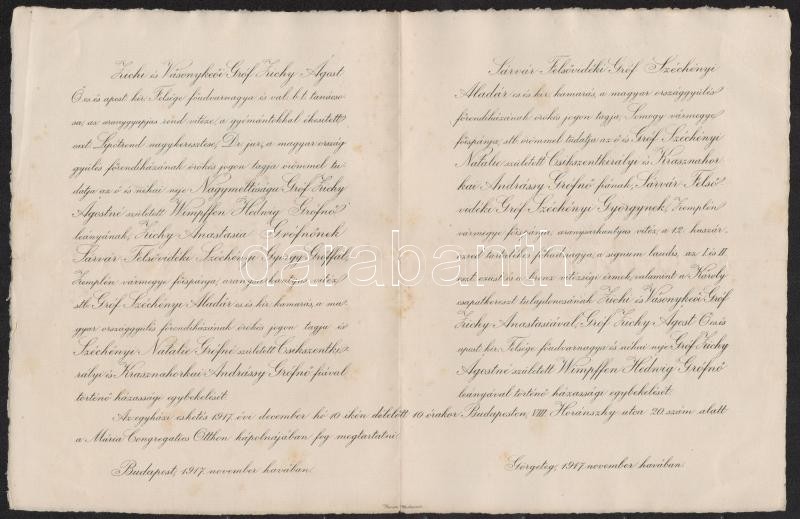 Zichi és Vásonykeői Gróf Zichy Ágost
Ő cs és apost. kir. Felsége főudvarnagya és val. b. t. tanácso-
sa, az aranygyapjas rend vitéze, a gyémántokkal ékesített
oszt. Lipótrend nagykeresztese, Dr. jur., a magyar ország
gyülés főrendiházának örökös jogon tagja örömmel tu-
datja az ő és néhai neje Nagyméltóságu Gróf Zichy
Ágostné született Wimpffen Hedwig Grófnő
leányának, Zichy Anastasia Grófnőnek
Sárvár Felsővidéki Széchényi György Gróffal,
Zemplén vármegye főispánja, aranysarkantyus vitéz
stb. Gróf Széchényi Aladár cs. és kir. kamarás, a ma-
gyar országgyülés főrendiházának örökös jogon tagja és
Széchényi Natalie Grófné született Csíkszentki-
rályi és Krasznahorkai Andrássy Grófnő fiával
történő házassági egybekelését.
Sárvár-Felsővidéki Gróf Széchényi
Aladár cs. és kir. kamarás, a magyar országgyülés
főrendiházának örökös jogon tagja, Somogy vármegye
főispánja, stb. örömmel tudatja az ő és Gróf Széchényi
Natalie született Csíkszentkirályi és Krasznahor
kai Andrássy Grófnő fiának, Sárvár-Felső
vidéki Gróf Széchényi Györgynek, Zemplén
vármegye főispánja, aranysarkantyus vitéz, a 12. huszár-
ezred tartalékos főhadnagya, a signum laudis, az I. és II.
oszt. ezüst és a bronz vitézségi érmek, valamint a Károly
csapatkereszt tulajdonosának Zichi és Vásonykeői Gróf
Zichy Anastasiával, Gróf Zichy Ágost Ő cs és
apost. kir. Felsége főudvarnagya és néhai neje Gróf Zichy
Ágostné született Wimpffen Hedwig Grófnő
leányával történő házassági egybekelését.
Az egyházi esketés 1917. évi december hó 10 ikén délelőtt 10 órakor Budapesten, VIII. Horánszky utca 20. szám alatt
a Mária Congregatios Otthon kápolnájában fog megtartatni.
Budapest, 1917. november havában.
Görgeteg, 1917. november havában.
darabanth